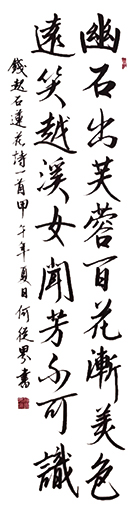 幽石出芙蓉百花漸美色
遠笑越溪女聞芳不可識
錢起石蓮花詩一首甲午年夏日何從罗書